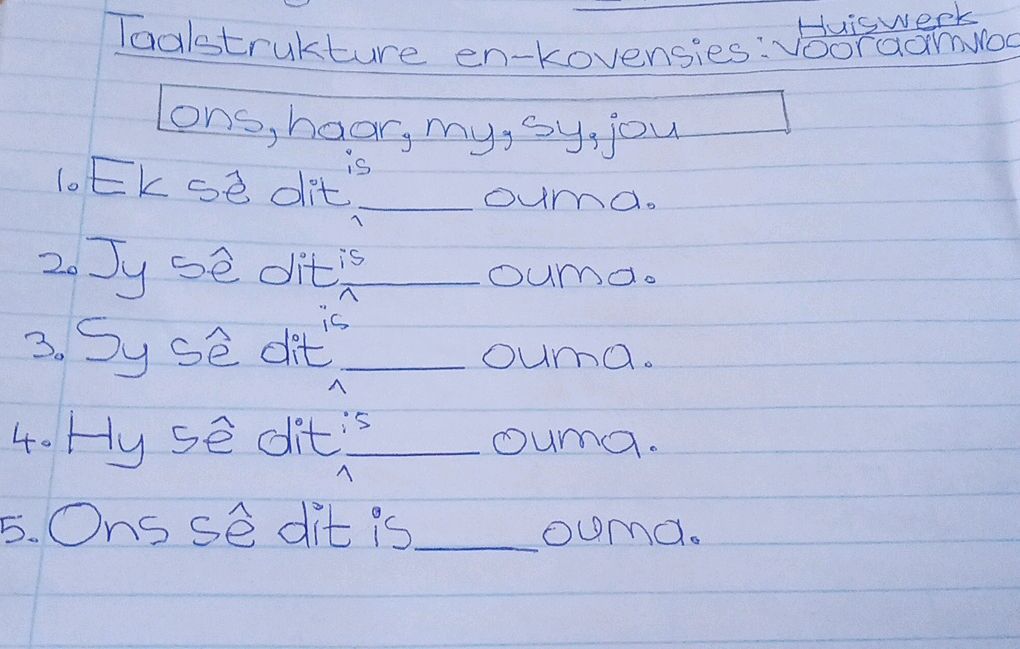 Huiswerk
Taalstrukture en-kovensies:
ons, haar, my, sy, jou
1. Ek sê dit is ____ ouma.
2. Jy sê dit is ____ ouma.
3. Sy sê dit is ____ ouma.
4. Hy sê dit is ____ ouma.
5. Ons sê dit is ____ ouma.